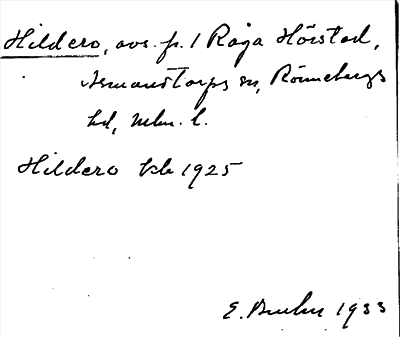 Hildero, avs. fr. 1 Råga Hörstad,
Asmundtorps sn, Rönnebergs
hd, Mlm. l.
Hildero kbr 1925
E. 1933